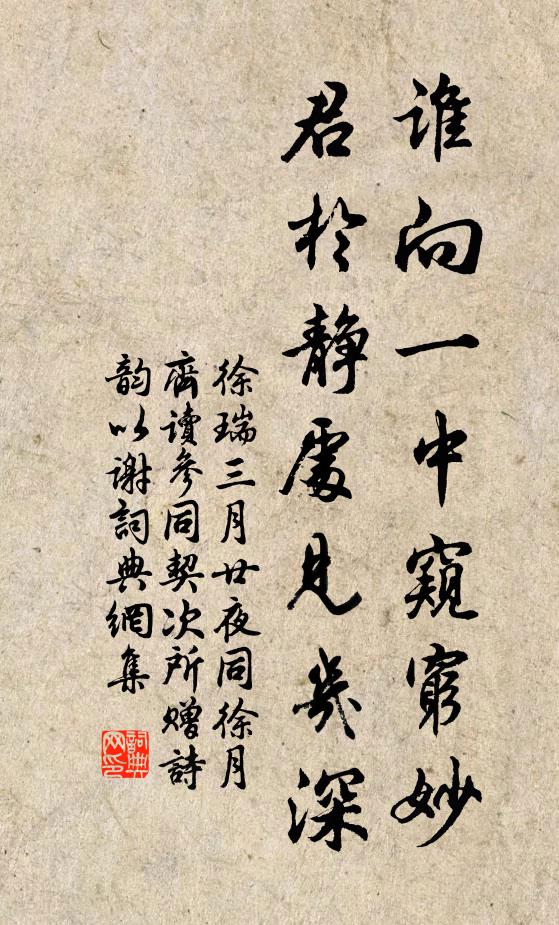 谁向一中窺窮妙
君於静處見幾深
徐瑞三月廿夜同徐月
齋讀參同契次所贈詩
韵以谢詞典網集
詞典
网印